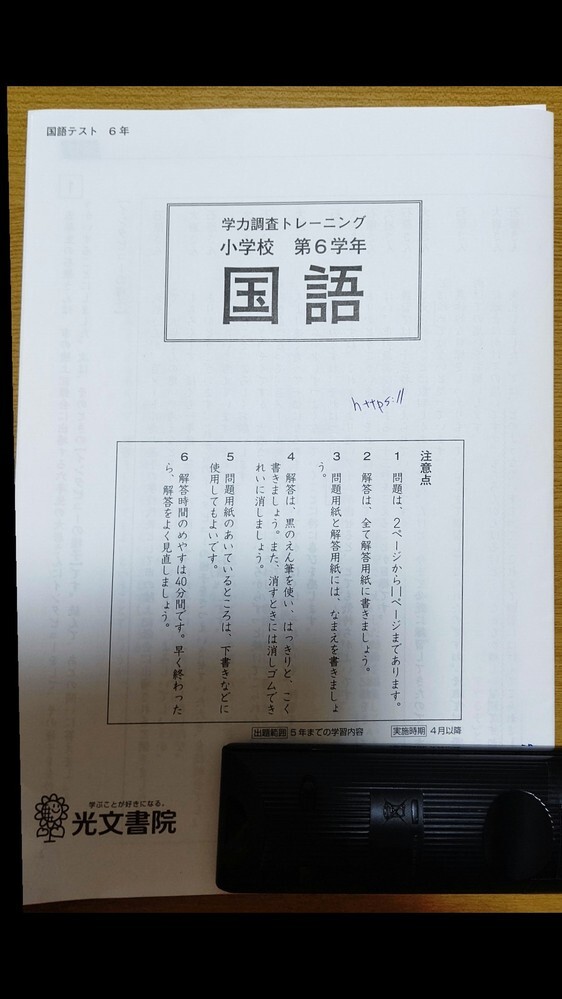 国語テスト 6年
学力調査トレーニング
小学校 第6学年
国語
https://
注意点
1 問題は、2ページから11ページまであります。
2 解答は、全て解答用紙に書きましょう。
3 問題用紙と解答用紙には、なまえを書きましょ
う。
4 解答は、黒のえん筆を使い、はっきりと、こく
書きましょう。また、消すときには消しゴムでき
れいに消しましょう。
5 問題用紙のあいているところは、下書きなどに
使用してもよいです。
6 解答時間のめやすは40分間です。早く終わった
ら、解答をよく見直しましょう。
出題範囲 5年までの学習内容 実施時期 4月以降
学ぶことが好きになる。
光文書院